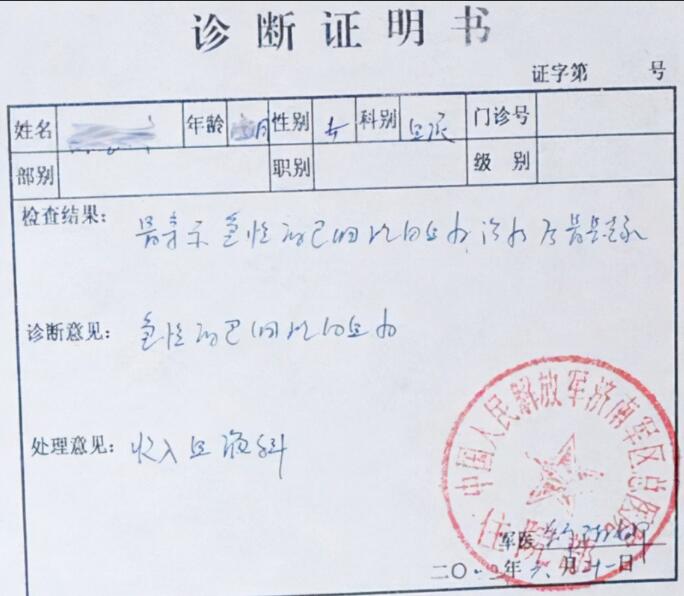 诊断证明书
证字第 号
姓名 年龄 月 性别 女 科别 血液 门诊号
部别 职别 级别
检查结果: 骨穿示急性淋巴细胞白血病
诊断意见: 急性淋巴细胞白血病
处理意见: 收入血液科
中国人民解放军济南军区总医院
住院部
军医
二〇 年 月 日